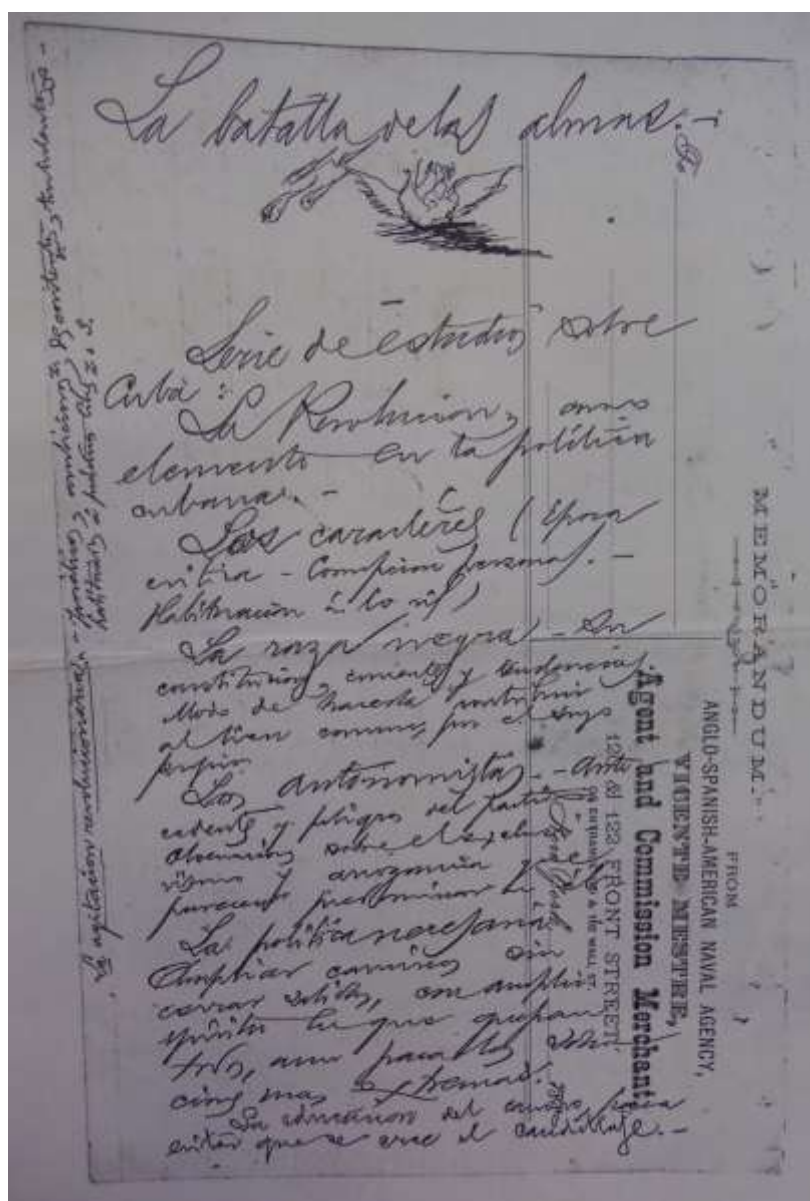 La batalla de las almas. -
Serie de estudios sobre
Cuba:
La Revolucion, como
elemento en la política
cubana. -
Los caractéres (época
crítica - personal. -
Habituación á lo vil)
La raza negra. - Su
constitucion, corrientes y tendencias.
Modo de hacerla contribuir
al bien comun, por el suyo
propio.
Los autonomistas. - Ante
cedentes y peligros del partido
sobre el exclusi
vismo y
parecen predominar en él
La política necesaria
Ampliar caminos sin
cerrar salidas, con amplio
espíritu en que quepan
todos, aun para las solu
ciones mas extremas.
La educacion del campo, para
evitar que se cree el caudillaje. -
La agitacion revolucionaria. -
habituado á
MEMORANDUM.
FROM
ANGLO-SPANISH-AMERICAN NAVAL AGENCY,
VICENTE MESTRE,
Agent and Commission Merchant,
120 & 122 FRONT STREET,
OR ENTRANCE & 116 WALL ST.
New York